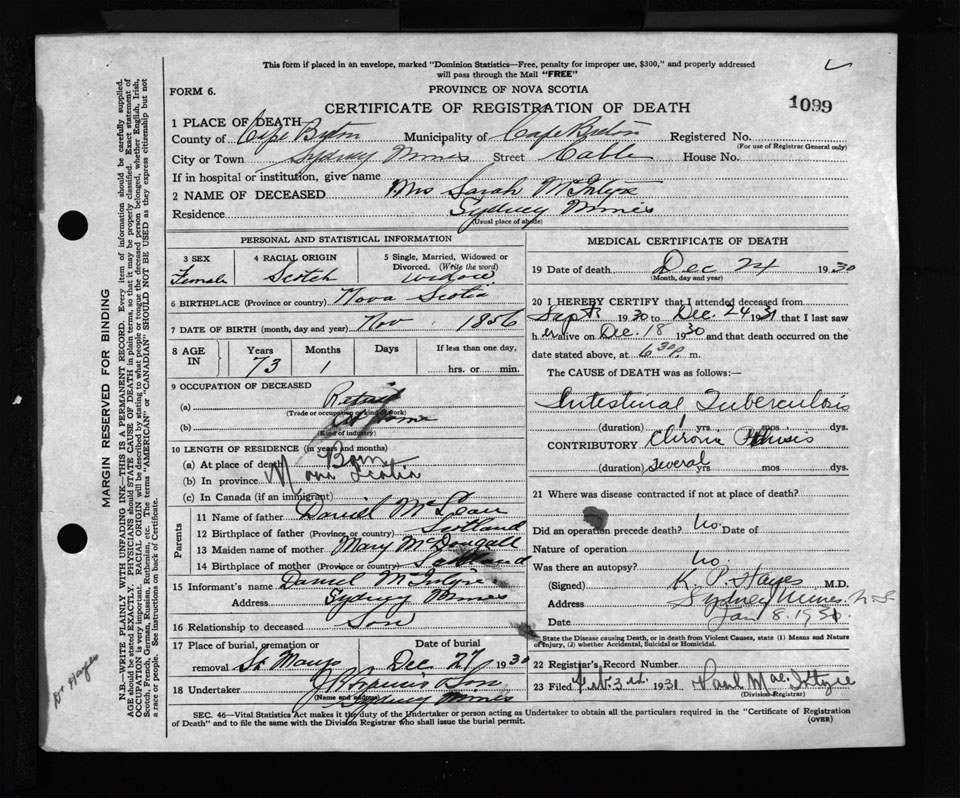 This form if placed in an envelope, marked "Dominion Statistics—Free, penalty for improper use, $300," and properly addressed
will pass through the Mail "FREE"
FORM 6.
PROVINCE OF NOVA SCOTIA
CERTIFICATE OF REGISTRATION OF DEATH
1099
1 PLACE OF DEATH—
County of Cape Breton Municipality of Cape Breton Registered No.
(For use of Registrar General only)
City or Town Sydney Mines Street Cable House No.
If in hospital or institution, give name
2 NAME OF DECEASED Mrs Sarah McIntyre
Residence Sydney Mines
(Usual place of abode)
PERSONAL AND STATISTICAL INFORMATION
3 SEX
Female
4 RACIAL ORIGIN
Scotch
5 Single, Married, Widowed or
Divorced. (Write the word)
widow
6 BIRTHPLACE (Province or country) Nova Scotia
7 DATE OF BIRTH (month, day and year) Nov 1856
8 AGE IN
Years
73
Months
1
Days
If less than one day,
hrs. or min.
9 OCCUPATION OF DECEASED
(a) Retired
(Trade or occupation or kind of work)
(b) At home
(Kind of industry)
10 LENGTH OF RESIDENCE (in years and months)
(a) At place of death Born
(b) In province Nova Scotia
(c) In Canada (if an immigrant)
Parents
11 Name of father Daniel McLean
12 Birthplace of father (Province or country) Scotland
13 Maiden name of mother Mary McDougall
14 Birthplace of mother (Province or country) Scotland
15 Informant's name Daniel McIntyre
Address Sydney Mines
16 Relationship to deceased Son
17 Place of burial, cremation or
Date of burial
removal St Marys Dec 27 1930
18 Undertaker Son
(Name and address)
Sydney Mines
MEDICAL CERTIFICATE OF DEATH
19 Date of death Dec 24 1930
(Month, day and year)
20 I HEREBY CERTIFY that I attended deceased from
Sept 1930 to Dec. 24 1931 that I last saw
her alive on Dec. 18 1930 and that death occurred on the
date stated above, at 6 30 p. m.
The CAUSE of DEATH was as follows:—
Intestinal Tuberculosis
(duration) 1 yrs. mos. dys.
CONTRIBUTORY Chronic Phthisis
(duration) Several yrs. mos dys.
21 Where was disease contracted if not at place of death?
Did an operation precede death? No. Date of
Nature of operation
Was there an autopsy? No.
(Signed) K. P. Hayes M.D.
Address Sydney Mines. N.S.
Date Jan 8. 1931
State the Disease causing Death, or in death from Violent Causes, state (1) Means and Nature
of Injury, (2) whether Accidental, Suicidal or Homicidal.
22 Registrar's Record Number
23 Filed Feb. 3rd. 1931 Paul MacIntyre
(Division-Registrar)
SEC. 46—Vital Statistics Act makes it the duty of the Undertaker or person acting as Undertaker to obtain all the particulars required in the "Certificate of Registration
of Death" and to file the same with the Division Registrar who shall issue the burial permit.
(OVER)
MARGIN RESERVED FOR BINDING
N.B.—WRITE PLAINLY WITH UNFADING INK—THIS IS A PERMANENT RECORD. Every item of information should be carefully supplied.
AGE should be stated EXACTLY. PHYSICIANS should STATE CAUSE OF DEATH in plain terms, so that it may be properly classified. Exact statement of
OCCUPATION is very important. RACIAL ORIGIN will be described by stating to what people or tongue the deceased person belonged, whether English, Irish,
Scotch, French, German, Russian, Ruthenian, etc. The terms "AMERICAN" or "CANADIAN" SHOULD NOT BE USED as they express citizenship but not
a race or people. See instructions on back of Certificate.
Dr Hayes